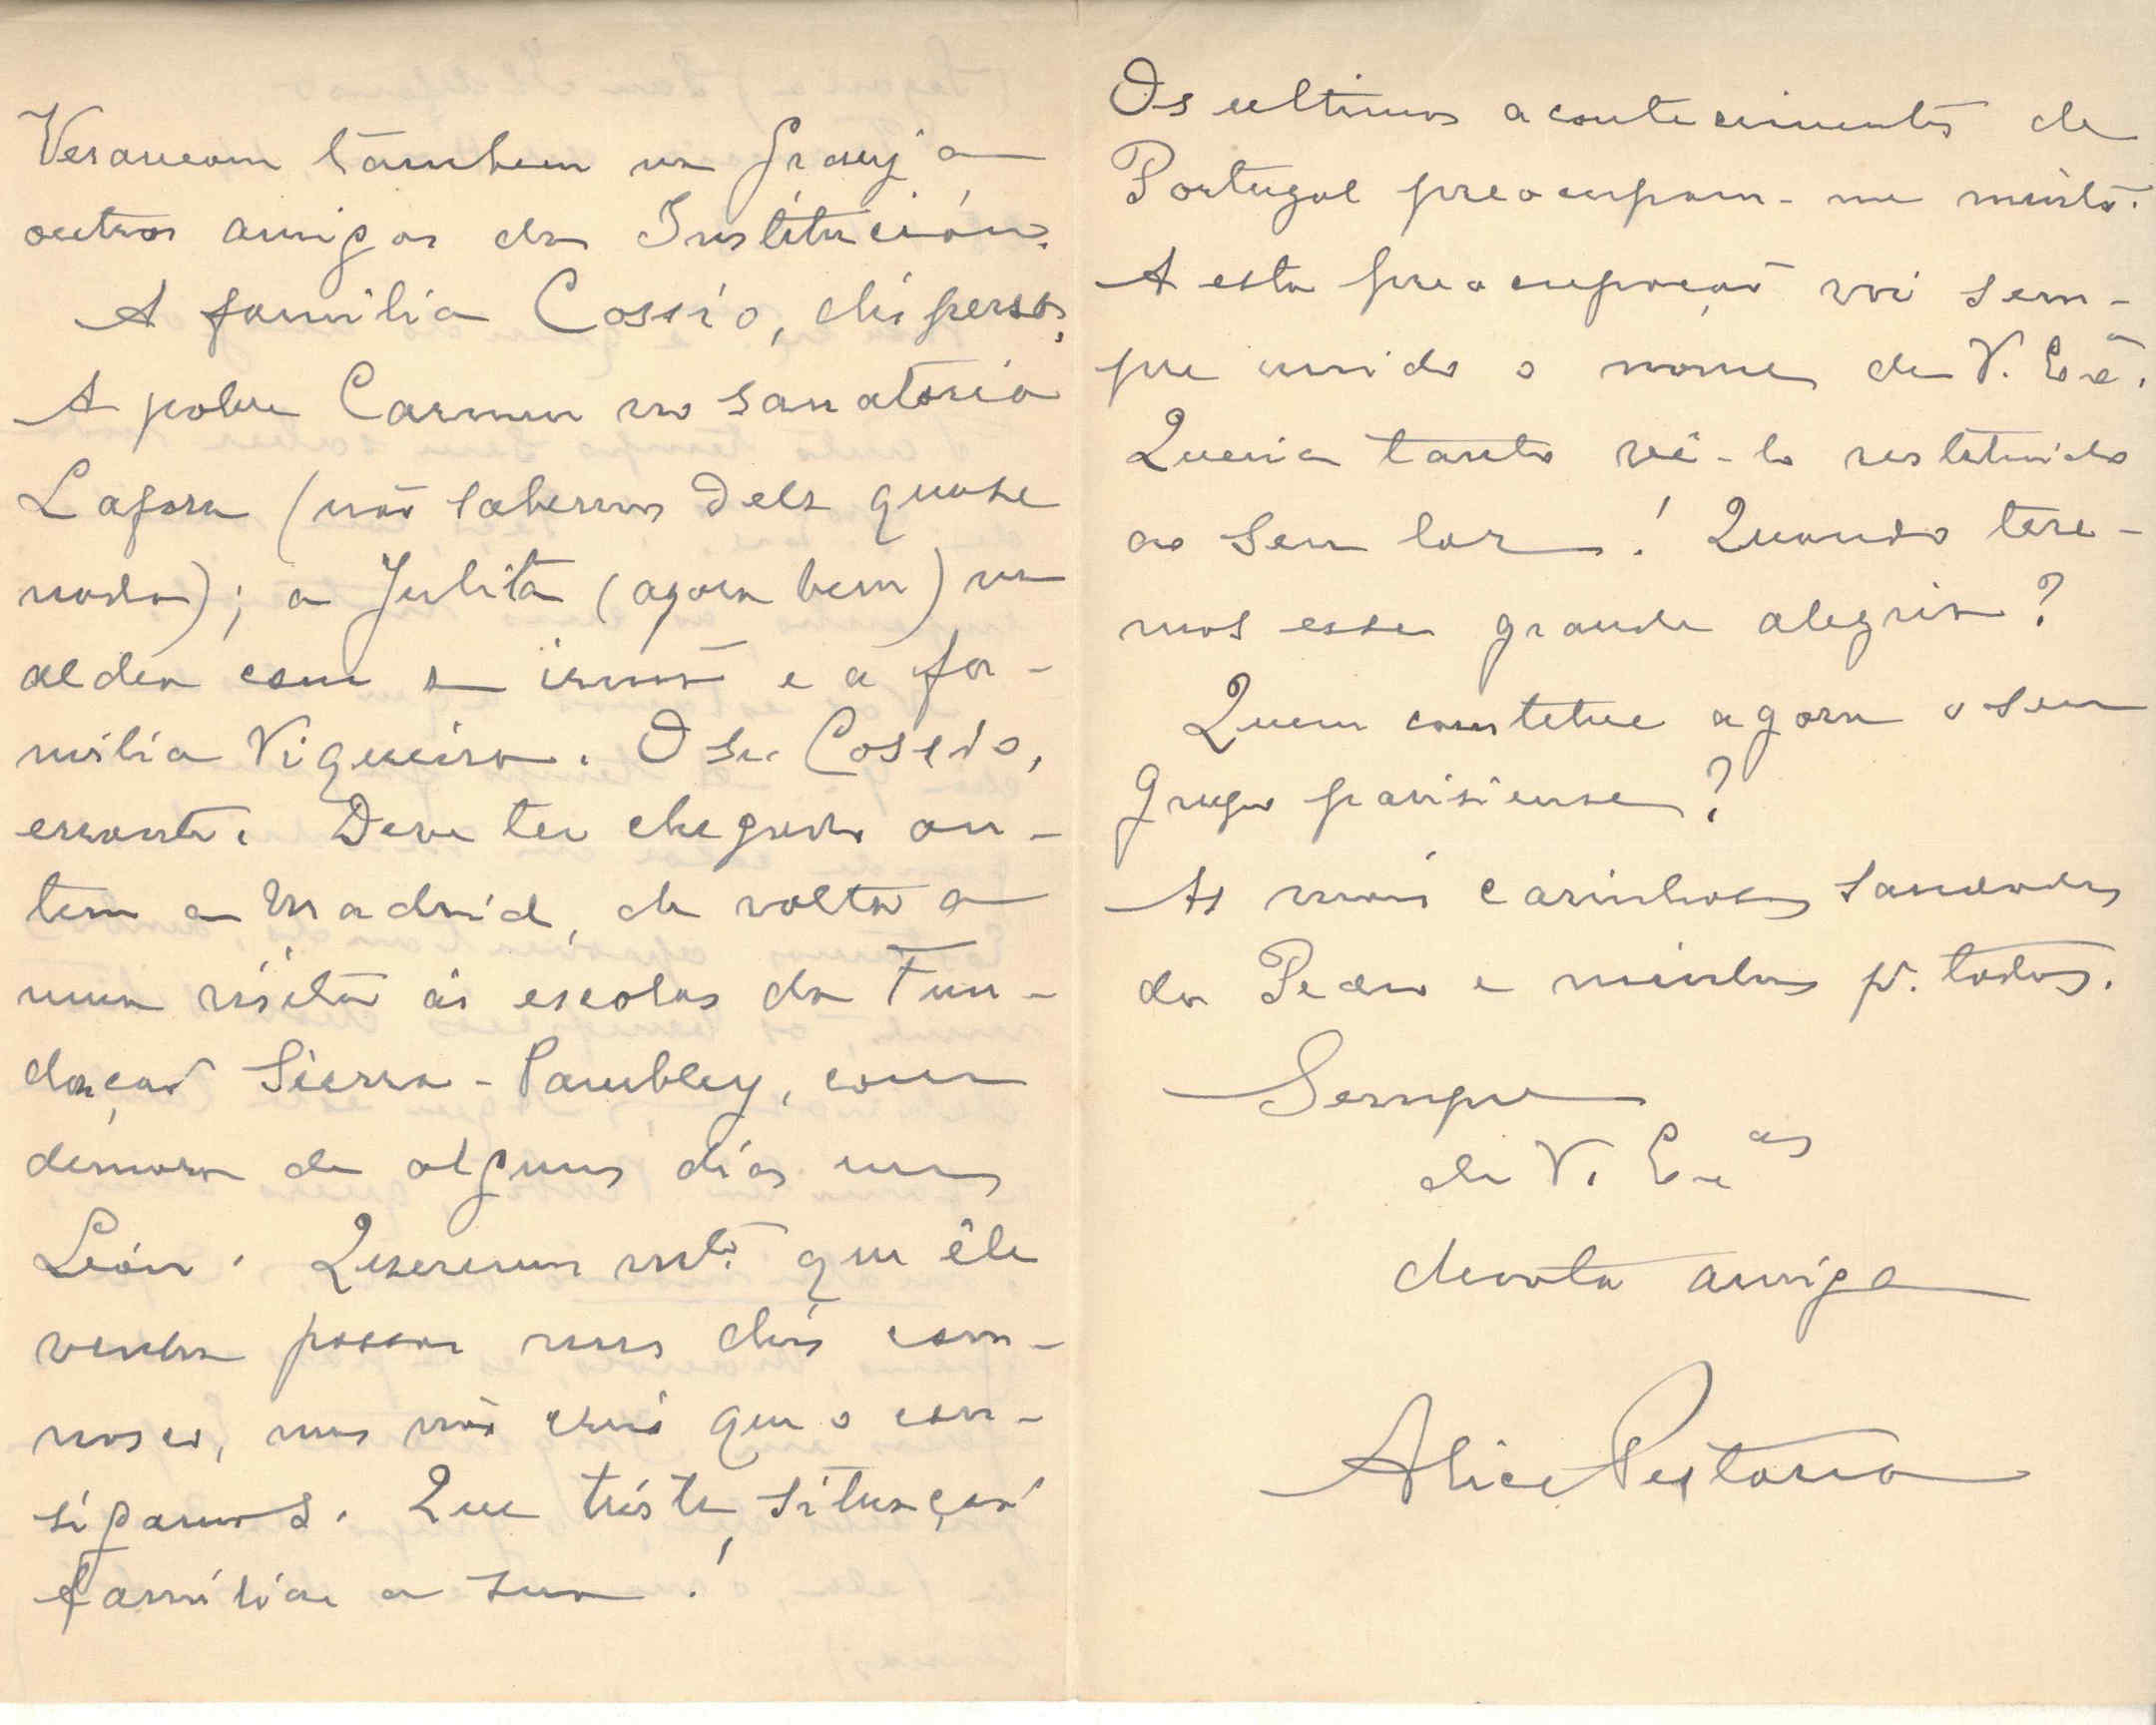 Veraneam tambem na Granja
outros amigos da Institución.
A familia Cossío, dispersa.
A pobre Carmen no sanatorio
Lafora (não sabemos dela quase
nada); a Julita (agora bem) na
aldea com a irmã e a fa-
milia Viqueira. O Sr. Cossío,
errante. Deve ter chegado on-
tem a Madrid, de volta a
uma visita ás escolas da Fun-
dação Sierra-Pambley, com
demora de alguns dias em
León. Queremos mto. que êle
venha passar uns dias com-
nosco, mas não creio que o con-
sigamos. Que triste situação
familiar a sua!
Os ultimos acontecimentos de
Portugal preocupam-me muito.
A esta preocupação vai sem-
pre unido o nome de V. Exª.
Queria tanto vê-lo restituido
ao seu lar! Quando tere-
mos essa grande alegria?
Quem constitue agora o seu
grupo parisiense?
As mais carinhosas saudades
do Pedro e minhas p. todos.
Sempre
de V. Exas
devota amiga
Alice Pestana